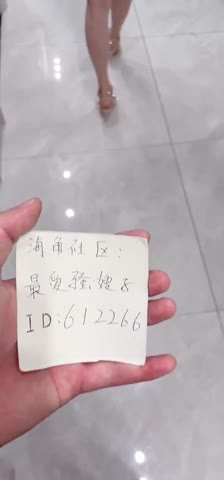 海角社区:
最爱骚嫂子
ID:612266